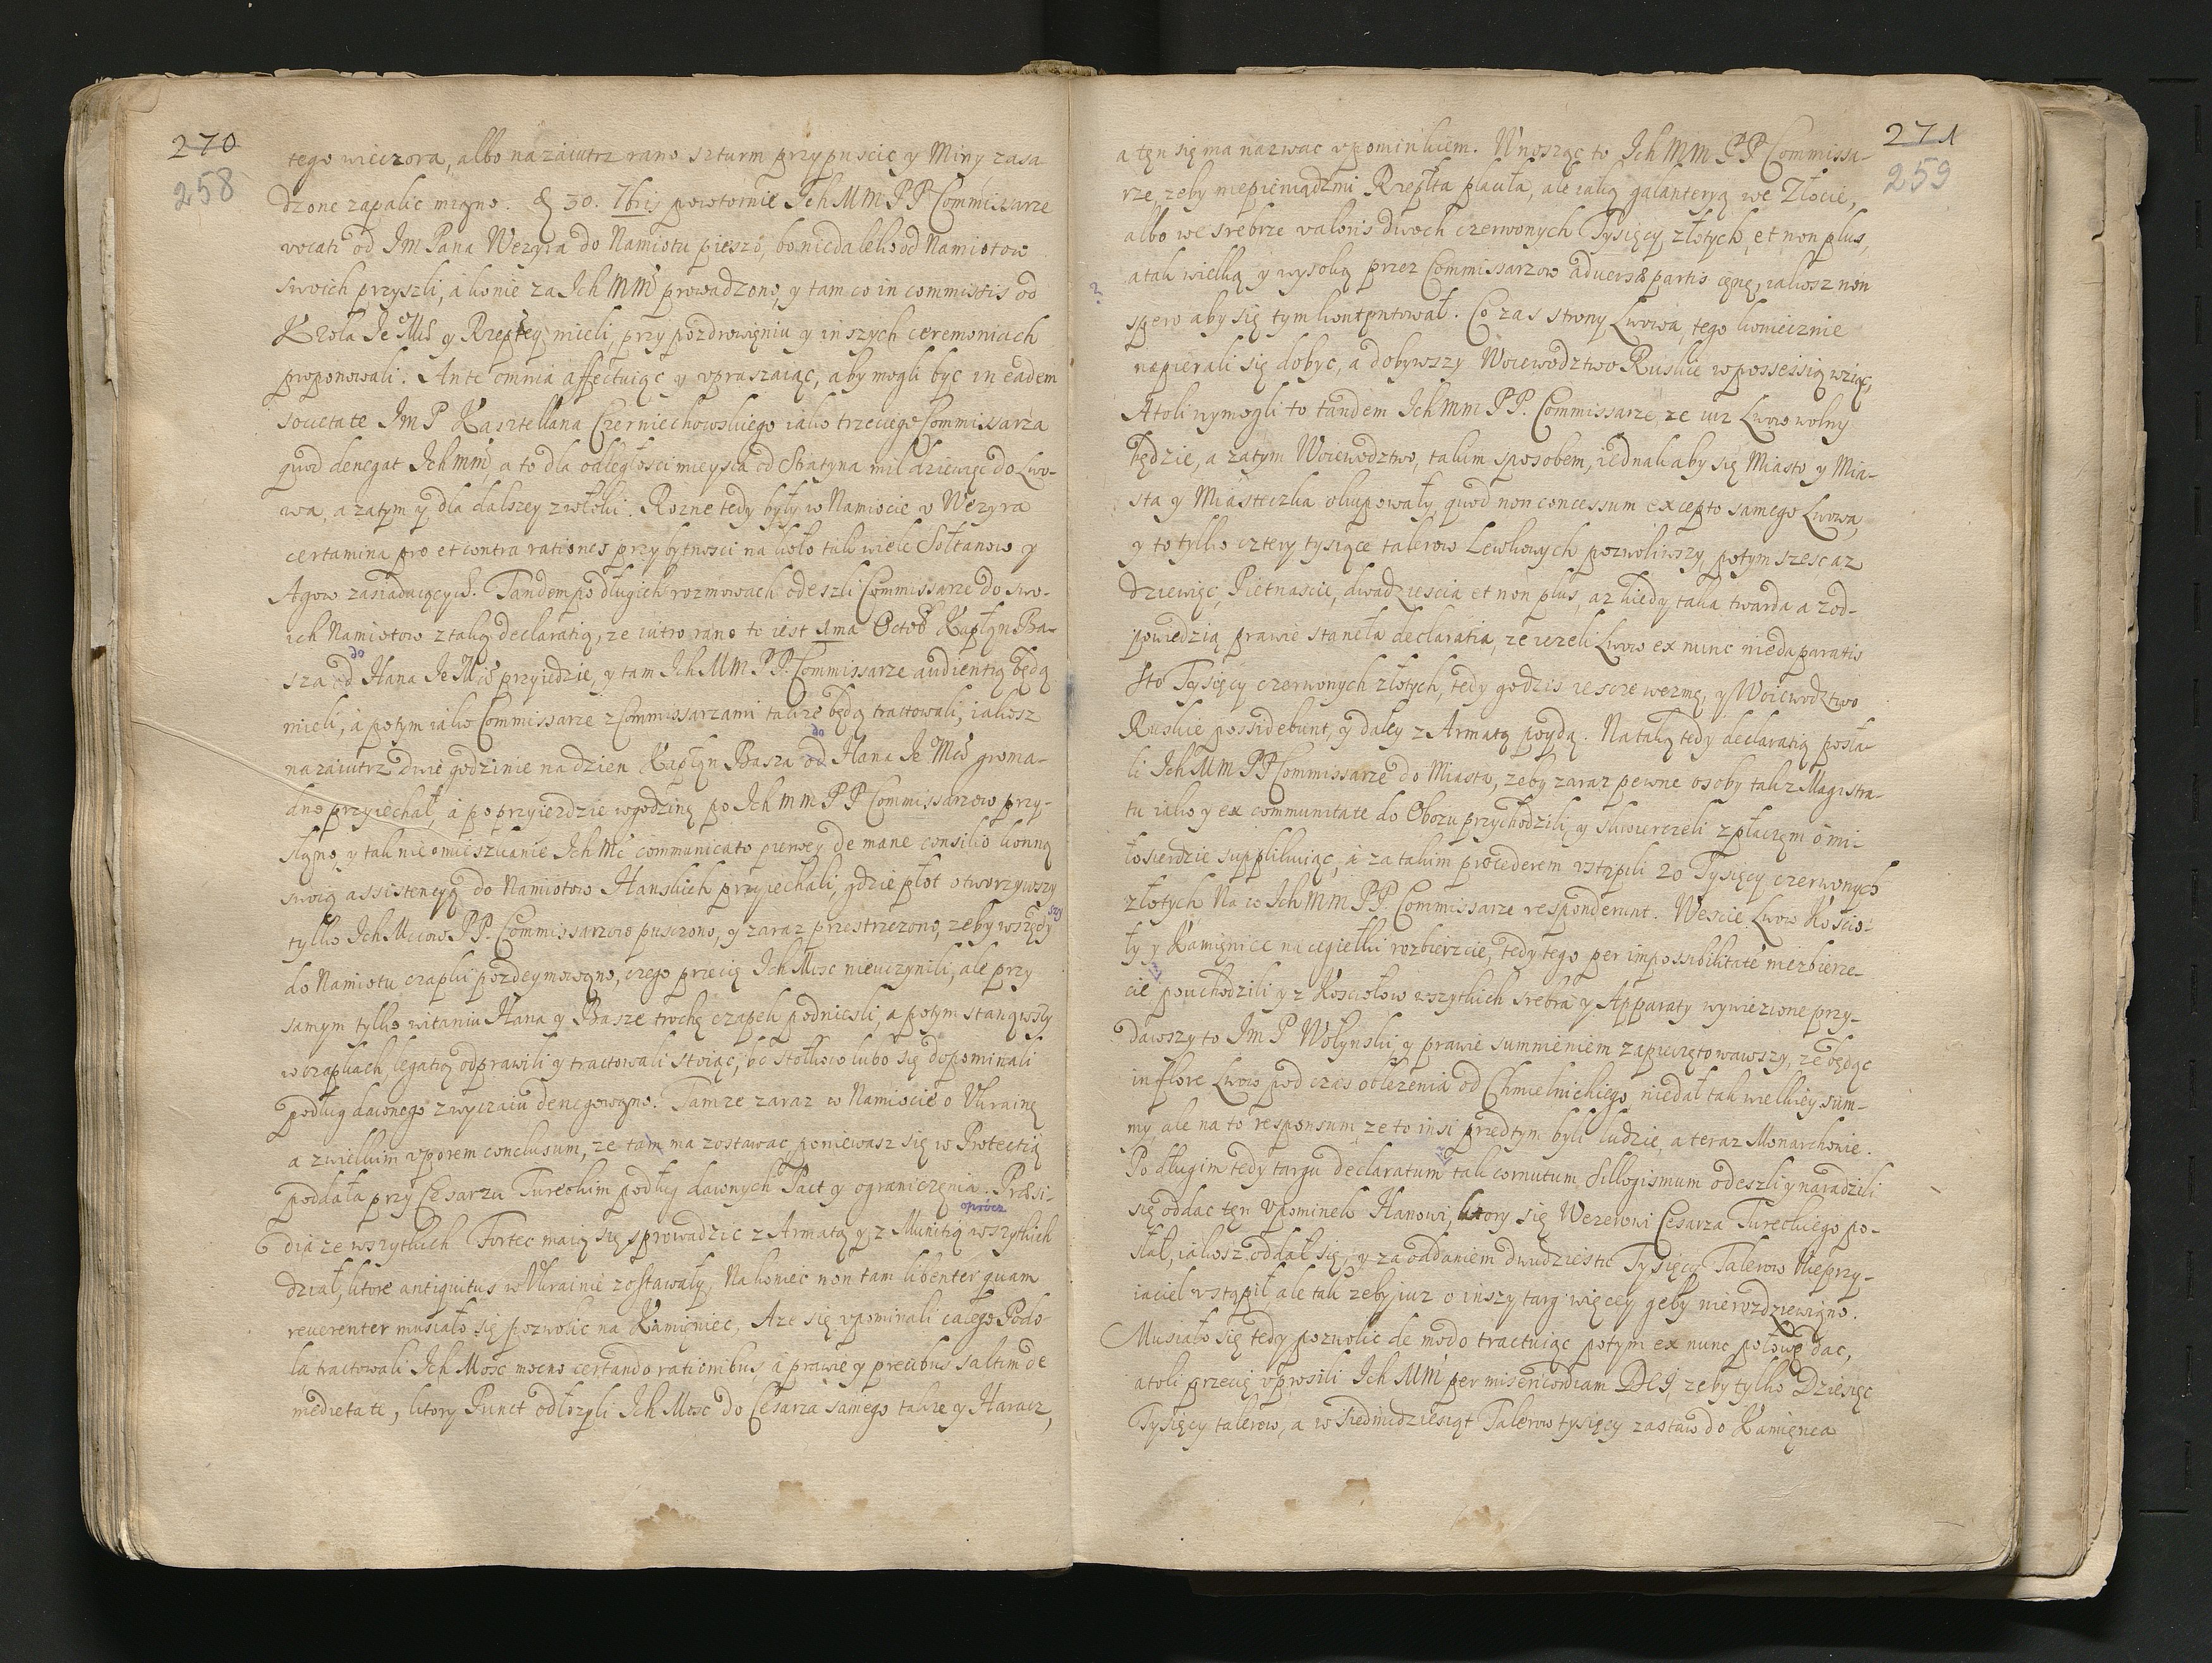 270
258
tego wieczora, albo nazaiutrz rano szturm przypuscic y Miny zasa
dzone zapalic miano. 30. 7bris powtornie Ich MM PP Commissarze
vocati od Im Pana Wezyra do Namiotu pieszo, bo niedaleko od Namiotow
swoich przyszli, a konie za Ich MM prowadzono, y tam co in commissis od
Krola Je Mści y Rzeptey mieli, przy pozdrowieniu y inszych ceremoniach
proponowali. Ante omnia affectuiąc y vpraszaiąc, aby mogli być in eadem
societate Im P Kasztellana Czerniechowskiego iako trzeciego Commissarza
quod denegat Ich MM, a to dla odległosci mieysca od Stratyna mil dziewięc do Lwo-
wa, a zatym y dla dalszey zwłoki. Rozne tedy były w Namiocie v Wezyra
certamina pro et contra rationes przy bytnosci na koło tak wiele Sołtanow y
Agow zasiadaiących. Tandem po długich rozmowach odeszli Commissarze do swo-
ich Namiotow z taką declaratią, ze iutro rano to iest 1ma Octob Kapłan Ba-
sza od do Hana Je Mści przyiedzie, y tam Ich MM PP. Commissarze audientią będą
mieli, a potym iako Commissarze z Commissarzami takze będą tractowali, iakosz
nazaiutrz dwie godzinie na dzien Kapłan Basza od do Hana Je Mści groma-
dno przyiechał, a po przyiezdzie w godzinę po Ich MM PP Commissarzow przy-
słano, y tak nieomieszkanie Ich Mć communicato pierwey de mane consilio konną
swoią assistencyą do Namiotow Hanskich przyiechali, gdzie płot otworzywszy
tylko Ich Mciow PP. Commissarzow pusczono, y zaraz przestrzezono, zeby wszędy szy
do Namiotu czapki pozdeymowano, czego przecię Ich Mosc nieuczynili, ale przy
samym tylko witaniu Hana y Basze trochę czapek podniesli, a potym stanąwszy
w czapkach, legatią odprawili y tractowali stoiąc, bo stołkow lubo się dopominali
podług dawnego zwyczaiu denegowano. Tamze zaraz w Namiocie o Vkrainę
a z wielkim vporem conclusum, ze tam ma zostawac poniewasz się w Protectią
poddała przy Cesarzu Tureckim podług dawnych Pact y ograniczenia. Præsi-
dia ze wszytkich Fortec maią się sprowadzic z Armatą y z Munitią oprócz wszytkich
dział, ktore antiquitus w Vkrainie zostawały. Nakoniec non tam libenter quam
reverenter musiało się pozwolic na Kamieniec. Aze się vpominali całego Podo-
la tractowali Ich Mosc mocno certando rationibus, a prawie y precibus saltim de
medietate, ktory Punct odłozyli Ich Mosc do Cesarza samego takze y Haracz,
271
259
a ten się ma nazwac vpominkiem. Wnosząc to Ich MM PP Commissa-
rze, zeby niepieniądzmi Rzepłta płaciła, ale iaką galanteryą we Złocie,
albo we srebrze valoris dwoch czerwonych Tysięcy złotych, et non plus,
a tak wielką y wysoką przez Commissarzow adversæ partis cenę, iakosz non
?
spero aby się tym kontentował. Co zas strony Lwowa, tego koniecznie
napierali się dobyc, a dobywszy Woiewodztwo Ruskie w possessią wziąc,
Atoli wymogli to tandem Ich MM PP. Commissarze, ze iuz Lwow wolny
będzie, a zatym Woiewodztwo, takim sposobem, iednak aby się Miasto y Mia-
sta y Miasteczka okupowały, quod non concessum excepto samego Lwowa,
y to tylko cztery tysiące talerow Lewkowych pozwoliwszy, potym szesc az
dziewięc, Pietnascie, dwadziescia et non plus, az kiedy taka twarda a zod-
powiedzią prawie stanęła declaratia, ze iezeli Lwow ex nunc nieda paratis
sto Tysięcy czerwonych złotych, tedy godzis iescze wezmę, y Woiewodztwo
Ruskie possidebunt, y daley z Armatą poydą. Na taką tedy declaratią posła-
li Ich MM PP Commissarze do Miasta, zeby zaraz pewne osoby tak z Magistra-
tu iako y ex communitate do Obozu przychodzili, y skwierczeli z płaczem o mi-
łosierdzie supplikuiąc, a za takim procederem vstąpili 20 Tysięcy czerwonych
złotych. Na co Ich MM PP. Commissarze responderunt. Wescie Lwow Koscio-
ły y Kamienice na cegiełki rozbierzcie, tedy tego per impossibilitate niezbierze-
cie pouchodzili y z Kosciołow wszytkich srebra y Apparaty wywiezione przy-
dawszy to Im P Wołynski, y prawie summieniem zapieczętowawszy, ze będąc
in flore Lwow pod czas oblezenia od Chmielnickiego niedał tak wielkiey sum-
my, ale na to responsum, ze to insi przedtym byli ludzie, a teraz Monarchowie.
Po długim tedy targu declaratum tak cornutum Sillogismum odeszli y naradzili
się oddac ten Vpominek Hanowi, ktory się Wezerowi Cesarza Tureckiego po-
słał, iakosz oddał się, y za oddaniem dwudziestu Tysięcy Talerow Nieprzy-
iaciel vstąpił, ale tak zeby iuz o inszy targ więcey gęby nierozdziewiano.
Musiało się tedy pozwolic de modo tractuiąc potym ex nunc połowę dac,
atoli przecię vprosili Ich MM per misericordiam DEI, zeby tylko Dziesięc
Tysięcy talerow, a w siedmdziesiąt Talerow tysięcy zastaw do Kamienca